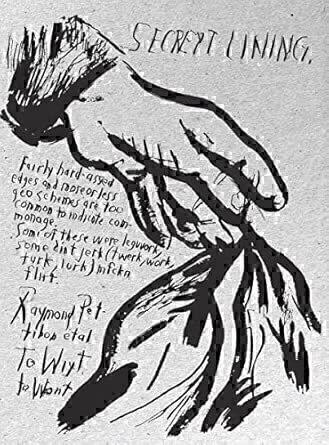 SECREYT LINING.
Fairly hard-assed
edges and mose or less
geo schemes are too
common to indicate com-
monage.
Some of these were legwork,
some dint jerk (twerk, work,
turk, lurk) mfckn
flint.
Raymond Pet-
tibon etal
To Wiyt
to Wont